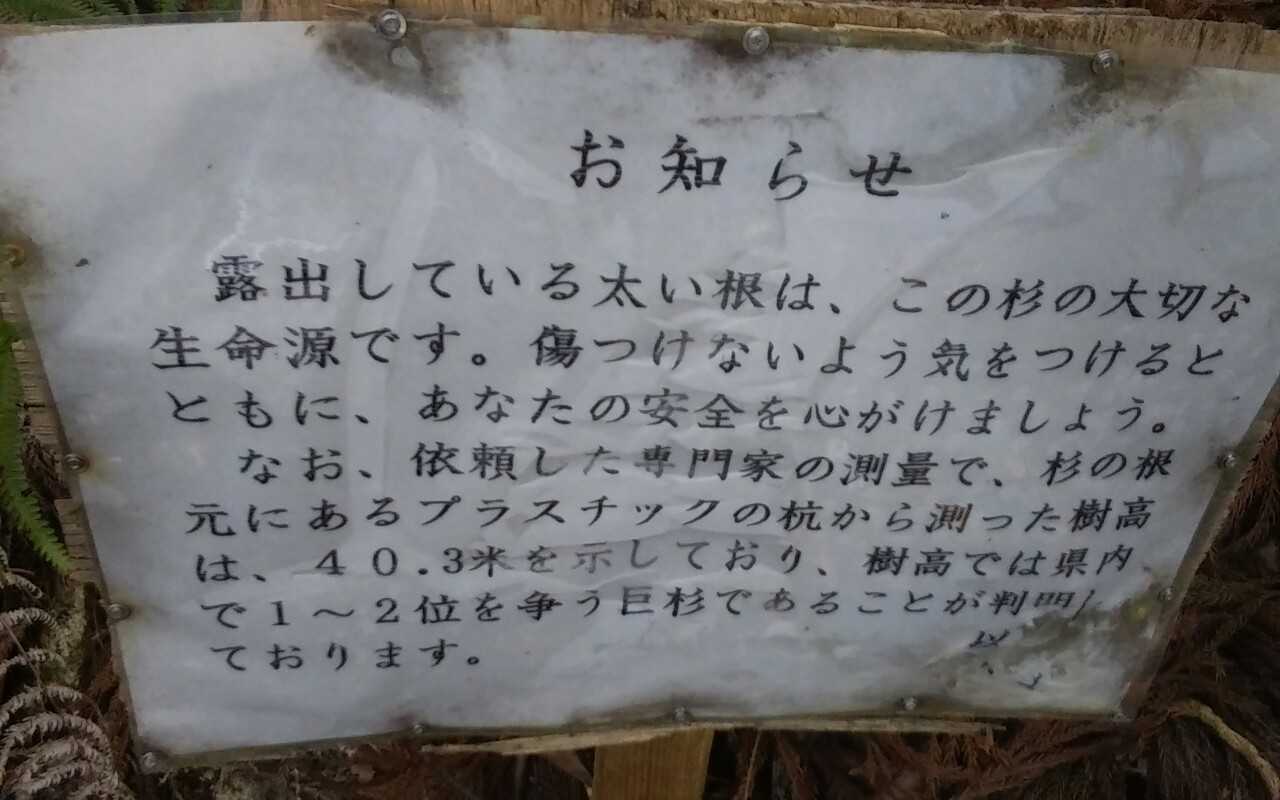 お知らせ
露出している太い根は、この杉の大切な
生命源です。傷つけないよう気をつけると
ともに、あなたの安全を心がけましょう。
なお、依頼した専門家の測量で、杉の根
元にあるプラスチックの杭から測った樹高
は、４０.3米を示しており、樹高では県内
で１～２位を争う巨杉であることが判
ております。